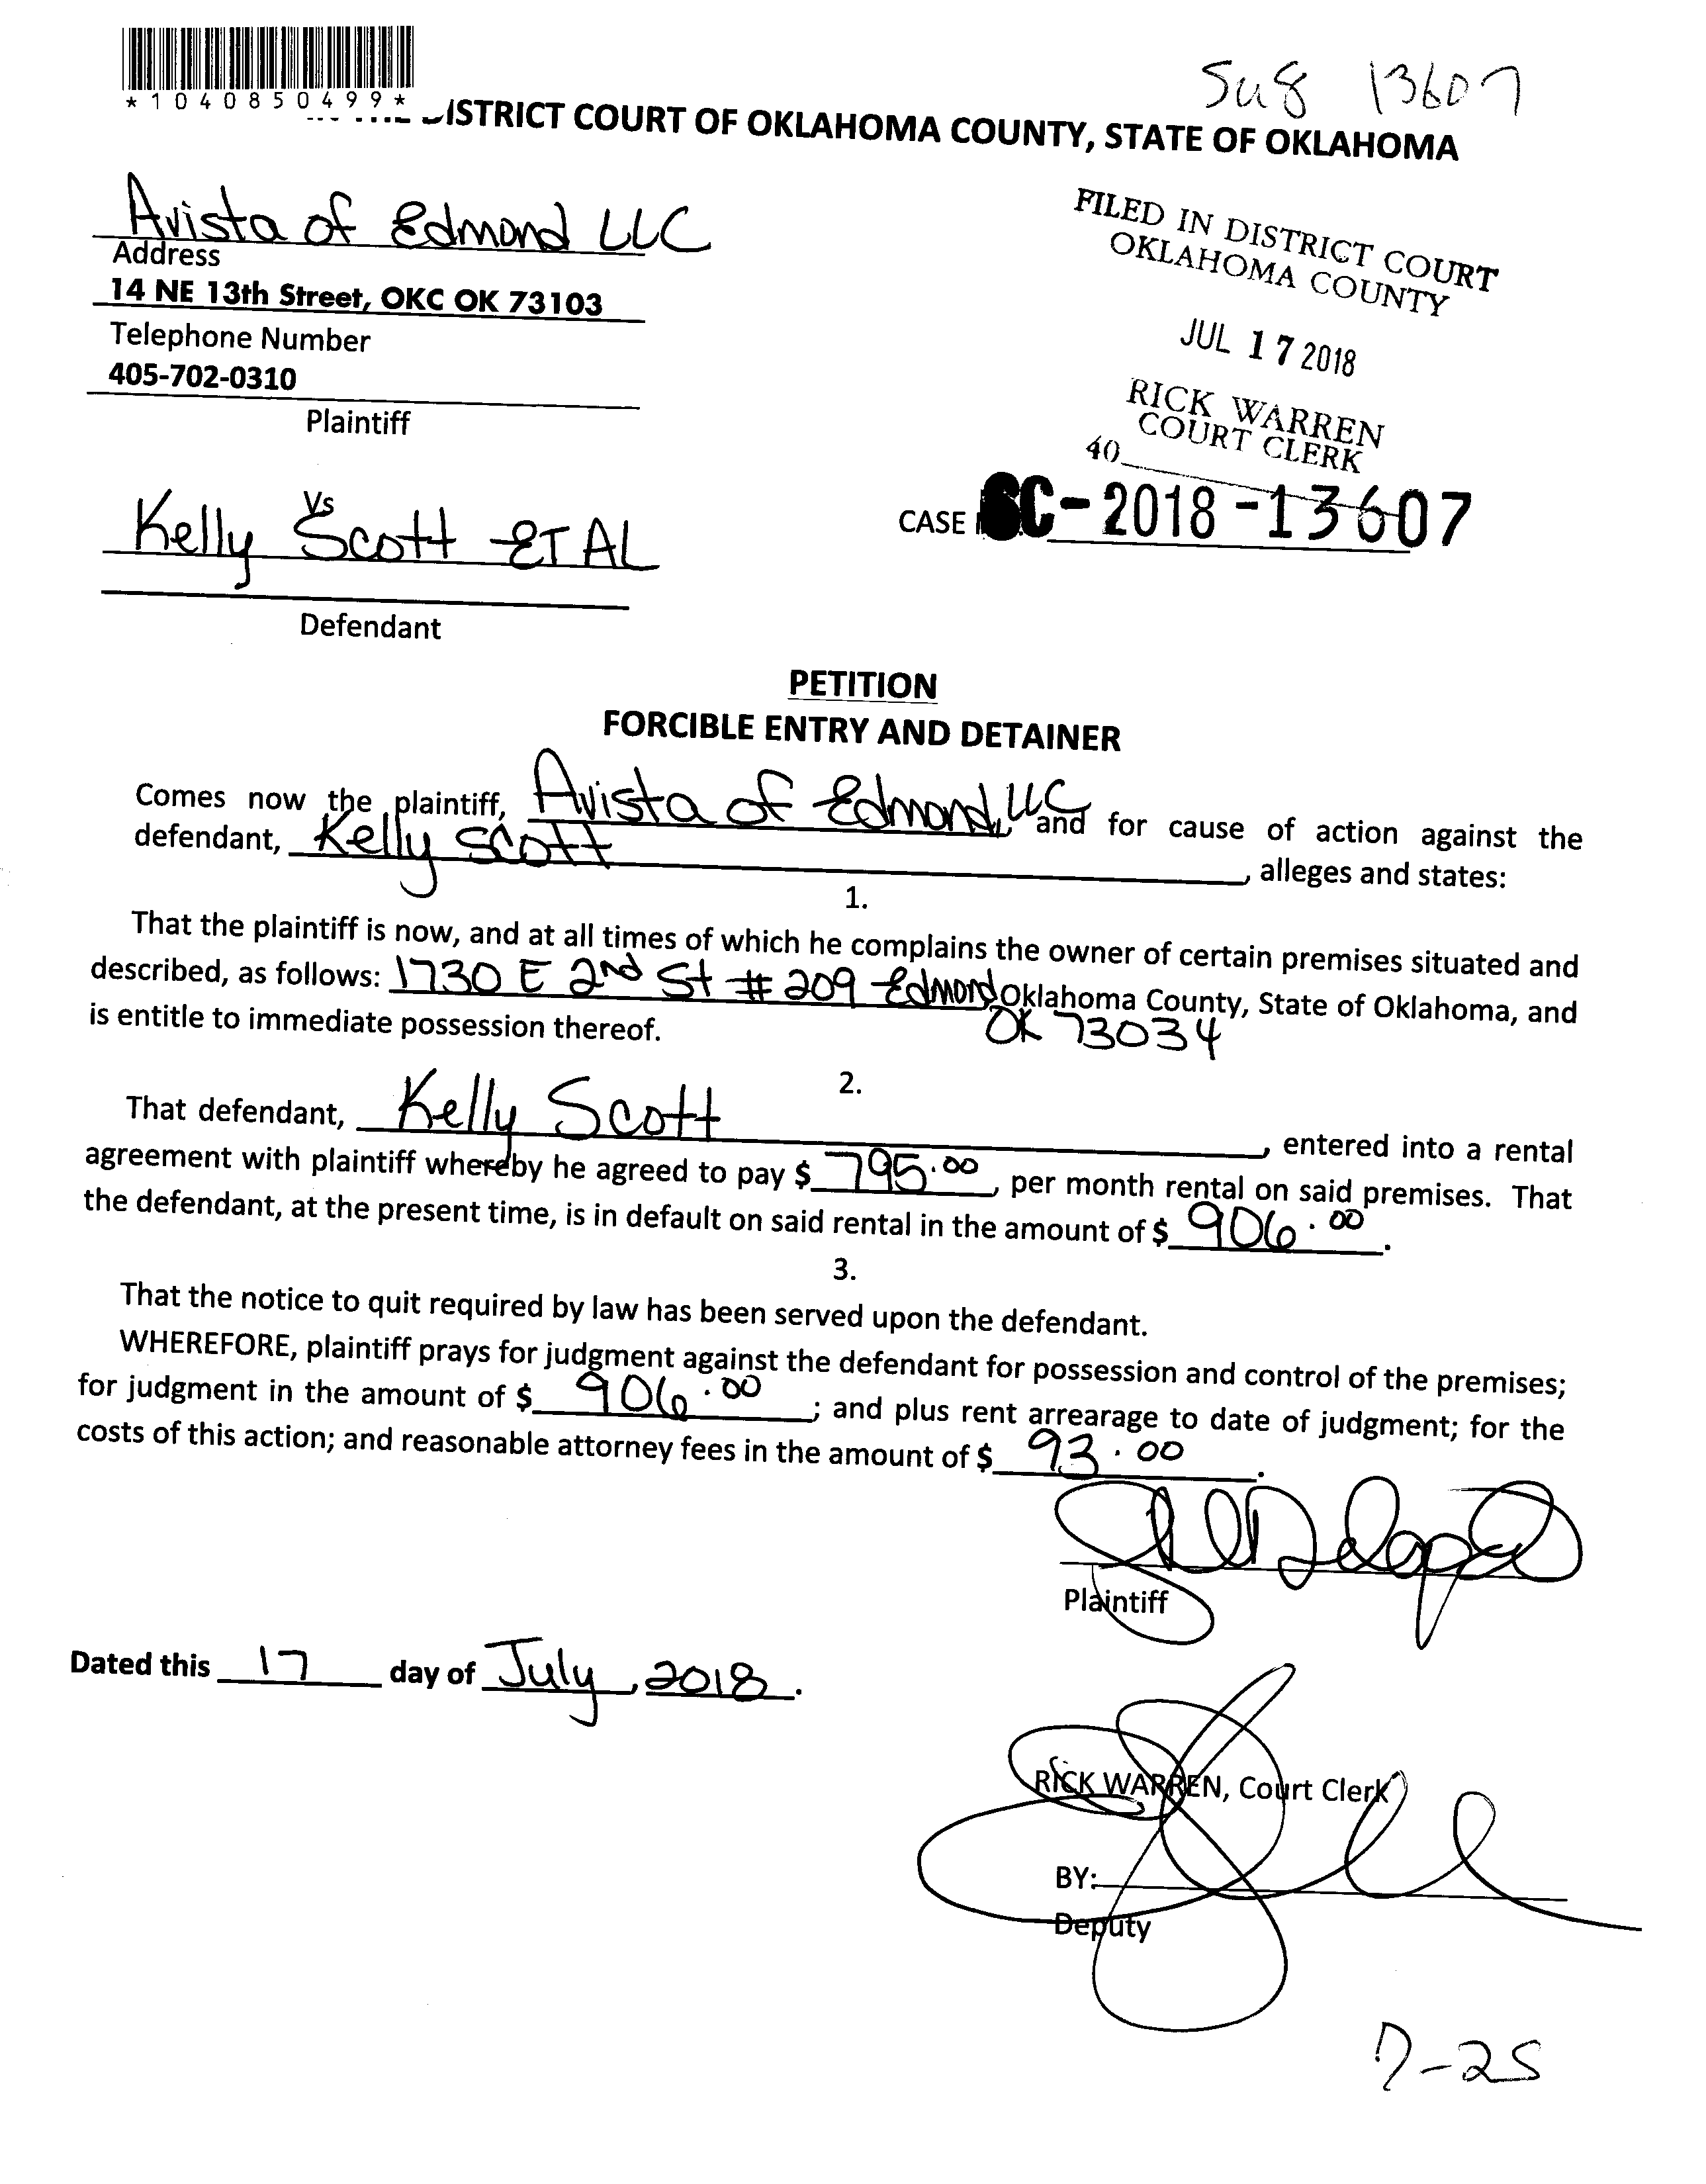 Sug 13607
*1040850499*
DISTRICT COURT OF OKLAHOMA COUNTY, STATE OF OKLAHOMA
Avista of Edmond LLC
Address
14 NE 13th Street, OKC OK 73103
Telephone Number
405-702-0310
Plaintiff
FILED IN DISTRICT COURT
OKLAHOMA COUNTY
JUL 17 2018
RICK WARREN
COURT CLERK
40
Vs
Kelly Scott ET AL
Defendant
CASE SC-2018-13607
PETITION
FORCIBLE ENTRY AND DETAINER
Comes now the plaintiff, Avista of Edmond, LLC and for cause of action against the
defendant, Kelly Scott, alleges and states:
1.
That the plaintiff is now, and at all times of which he complains the owner of certain premises situated and
described, as follows: 1730 E 2nd St # 209 Edmond Oklahoma County, State of Oklahoma, and
OK 73034
is entitle to immediate possession thereof.
2.
That defendant, Kelly Scott, entered into a rental
agreement with plaintiff whereby he agreed to pay $ 795.00, per month rental on said premises. That
the defendant, at the present time, is in default on said rental in the amount of $ 906.00.
3.
That the notice to quit required by law has been served upon the defendant.
WHEREFORE, plaintiff prays for judgment against the defendant for possession and control of the premises;
for judgment in the amount of $ 906.00; and plus rent arrearage to date of judgment; for the
costs of this action; and reasonable attorney fees in the amount of $ 93.00.
Plaintiff
Dated this 17 day of July, 2018.
RICK WARREN, Court Clerk
BY:
Deputy
7-25